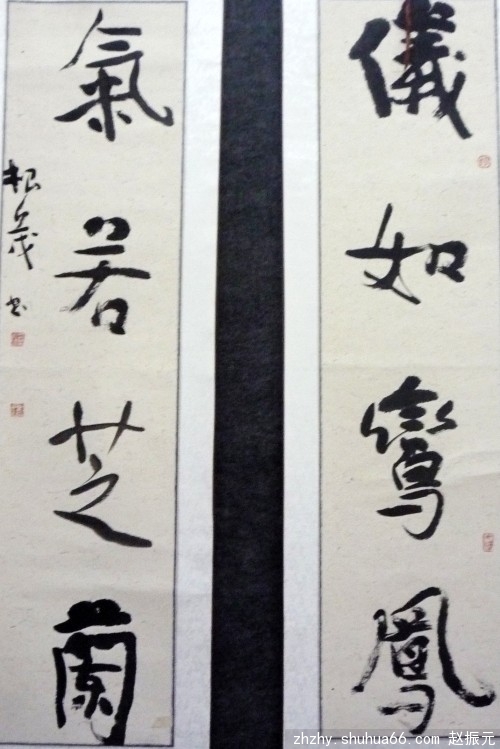 儀如鸞鳳
氣若芝蘭
根茂书
zhzhy.shuhua66.com 赵振元